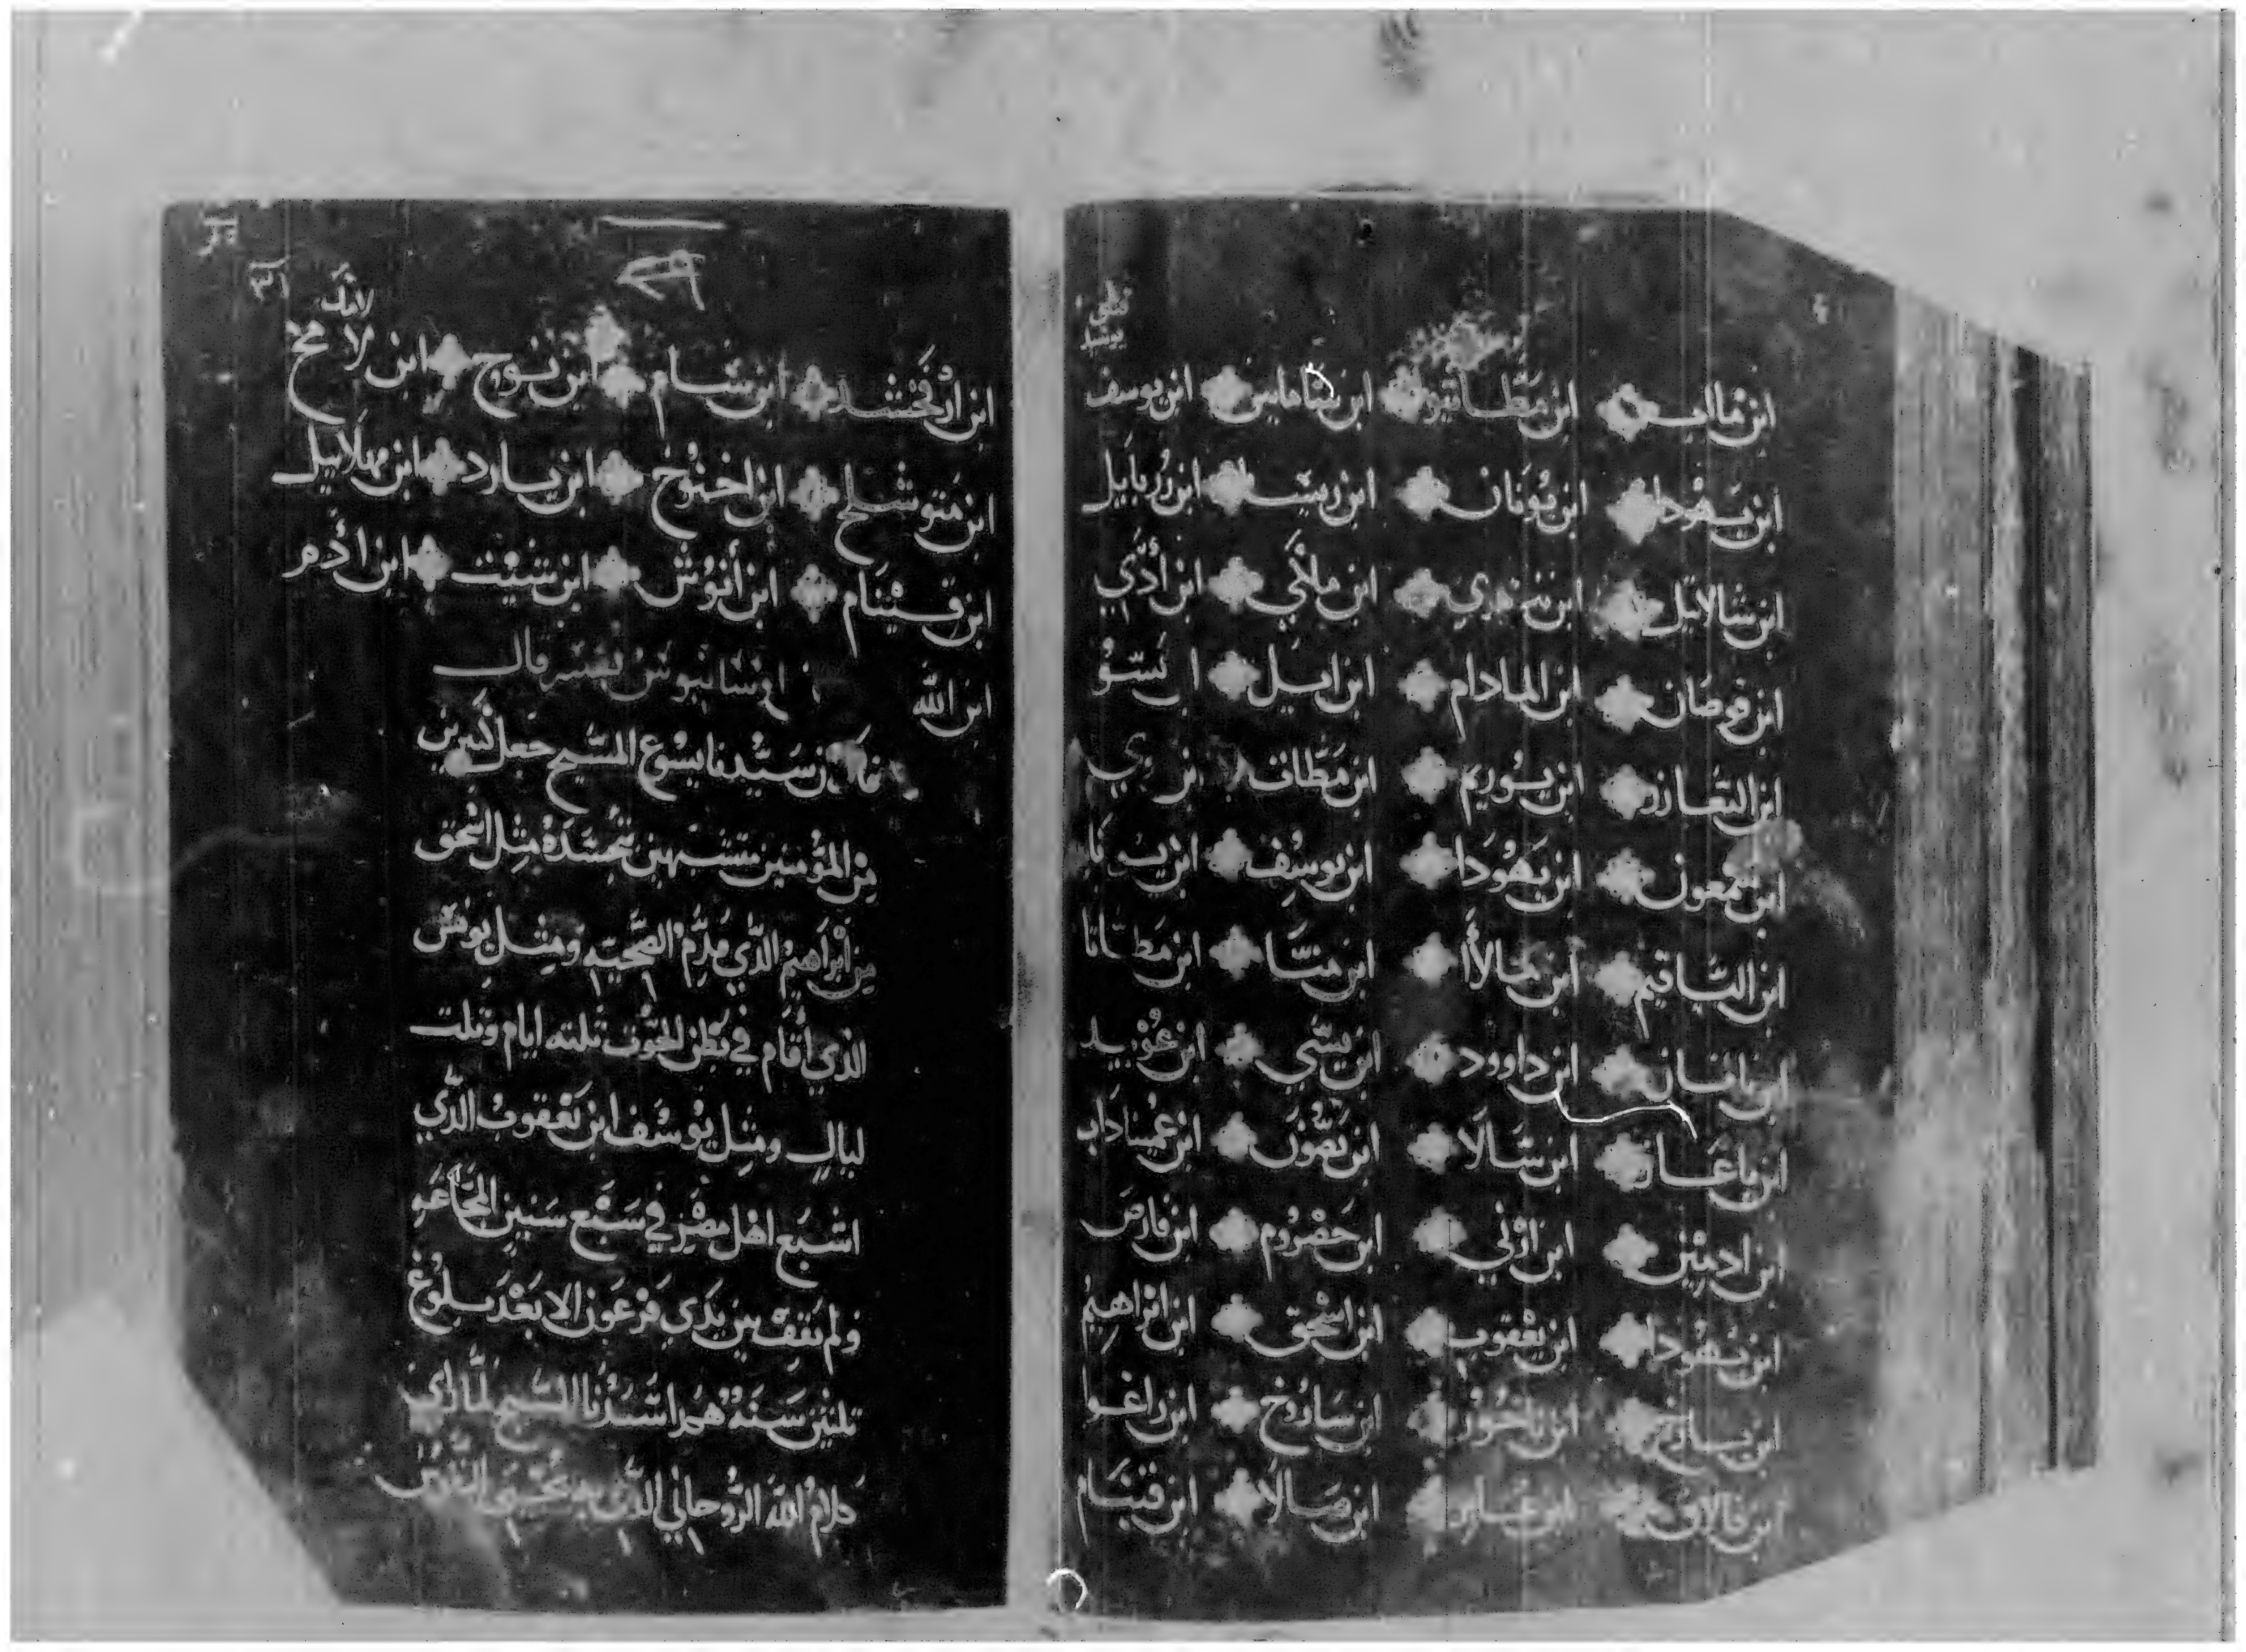 ابن ماتاب ابن مطاتيو ابن شاماس ابن يوسف
ابن يهودا ابن يونان ابن ريسا ابن زربابيل
ابن شالاتيل ابن نيري ابن ملكي ابن أدي
ابن قوصان ابن المادام ابن ايل ا يسو
ابن اليعازر ابن يوريم ابن مطاف
ابن شمعون ابن يهودا ابن يوسف ابن
ابن الياقيم ابن مالأا ابن متا ابن مطاتا
ابن ناتان ابن داوود ابن يسي ابن عوبيد
ابن باعاز ابن شالا ابن نصون ابن عميناداب
ابن ادمين ابن ارني ابن حضروم ابن فارص
ابن يهودا ابن يعقوب ابن اسحق ابن ابراهيم
ابن تارخ ابن ناخور ابن ساروخ ابن راغوا
ابن فالاق ابن عابر ابن صالا ابن قينام
لامك
ابن ارفخشد ابن سام ابن نوح ابن لامخ
ابن متوشلح ابن اخنوخ ابن يارد ابن مهلاليل
ابن قينام ابن أنوش ابن شيت ابن أدم
ابن الله
سيدنا يسوع المسيح جعل كثيرين
من المؤمنين متشبهين بتجسده مثل اسحق
من ابراهيم الذي الضحيه ومثل يونس
الذي أقام في بطن الحوت تلته ايام وتلت
ليال ومثل يوسف ابن يعقوب الذي
اشبع اهل مصر في سبع سنين المجاعه
ولم يقف بين يدي فرعون الا بعد بلوغ
تلتين سنة هكذا سيدنا المسيح
كلام الله الروحاني الذي به تحيى النفوس